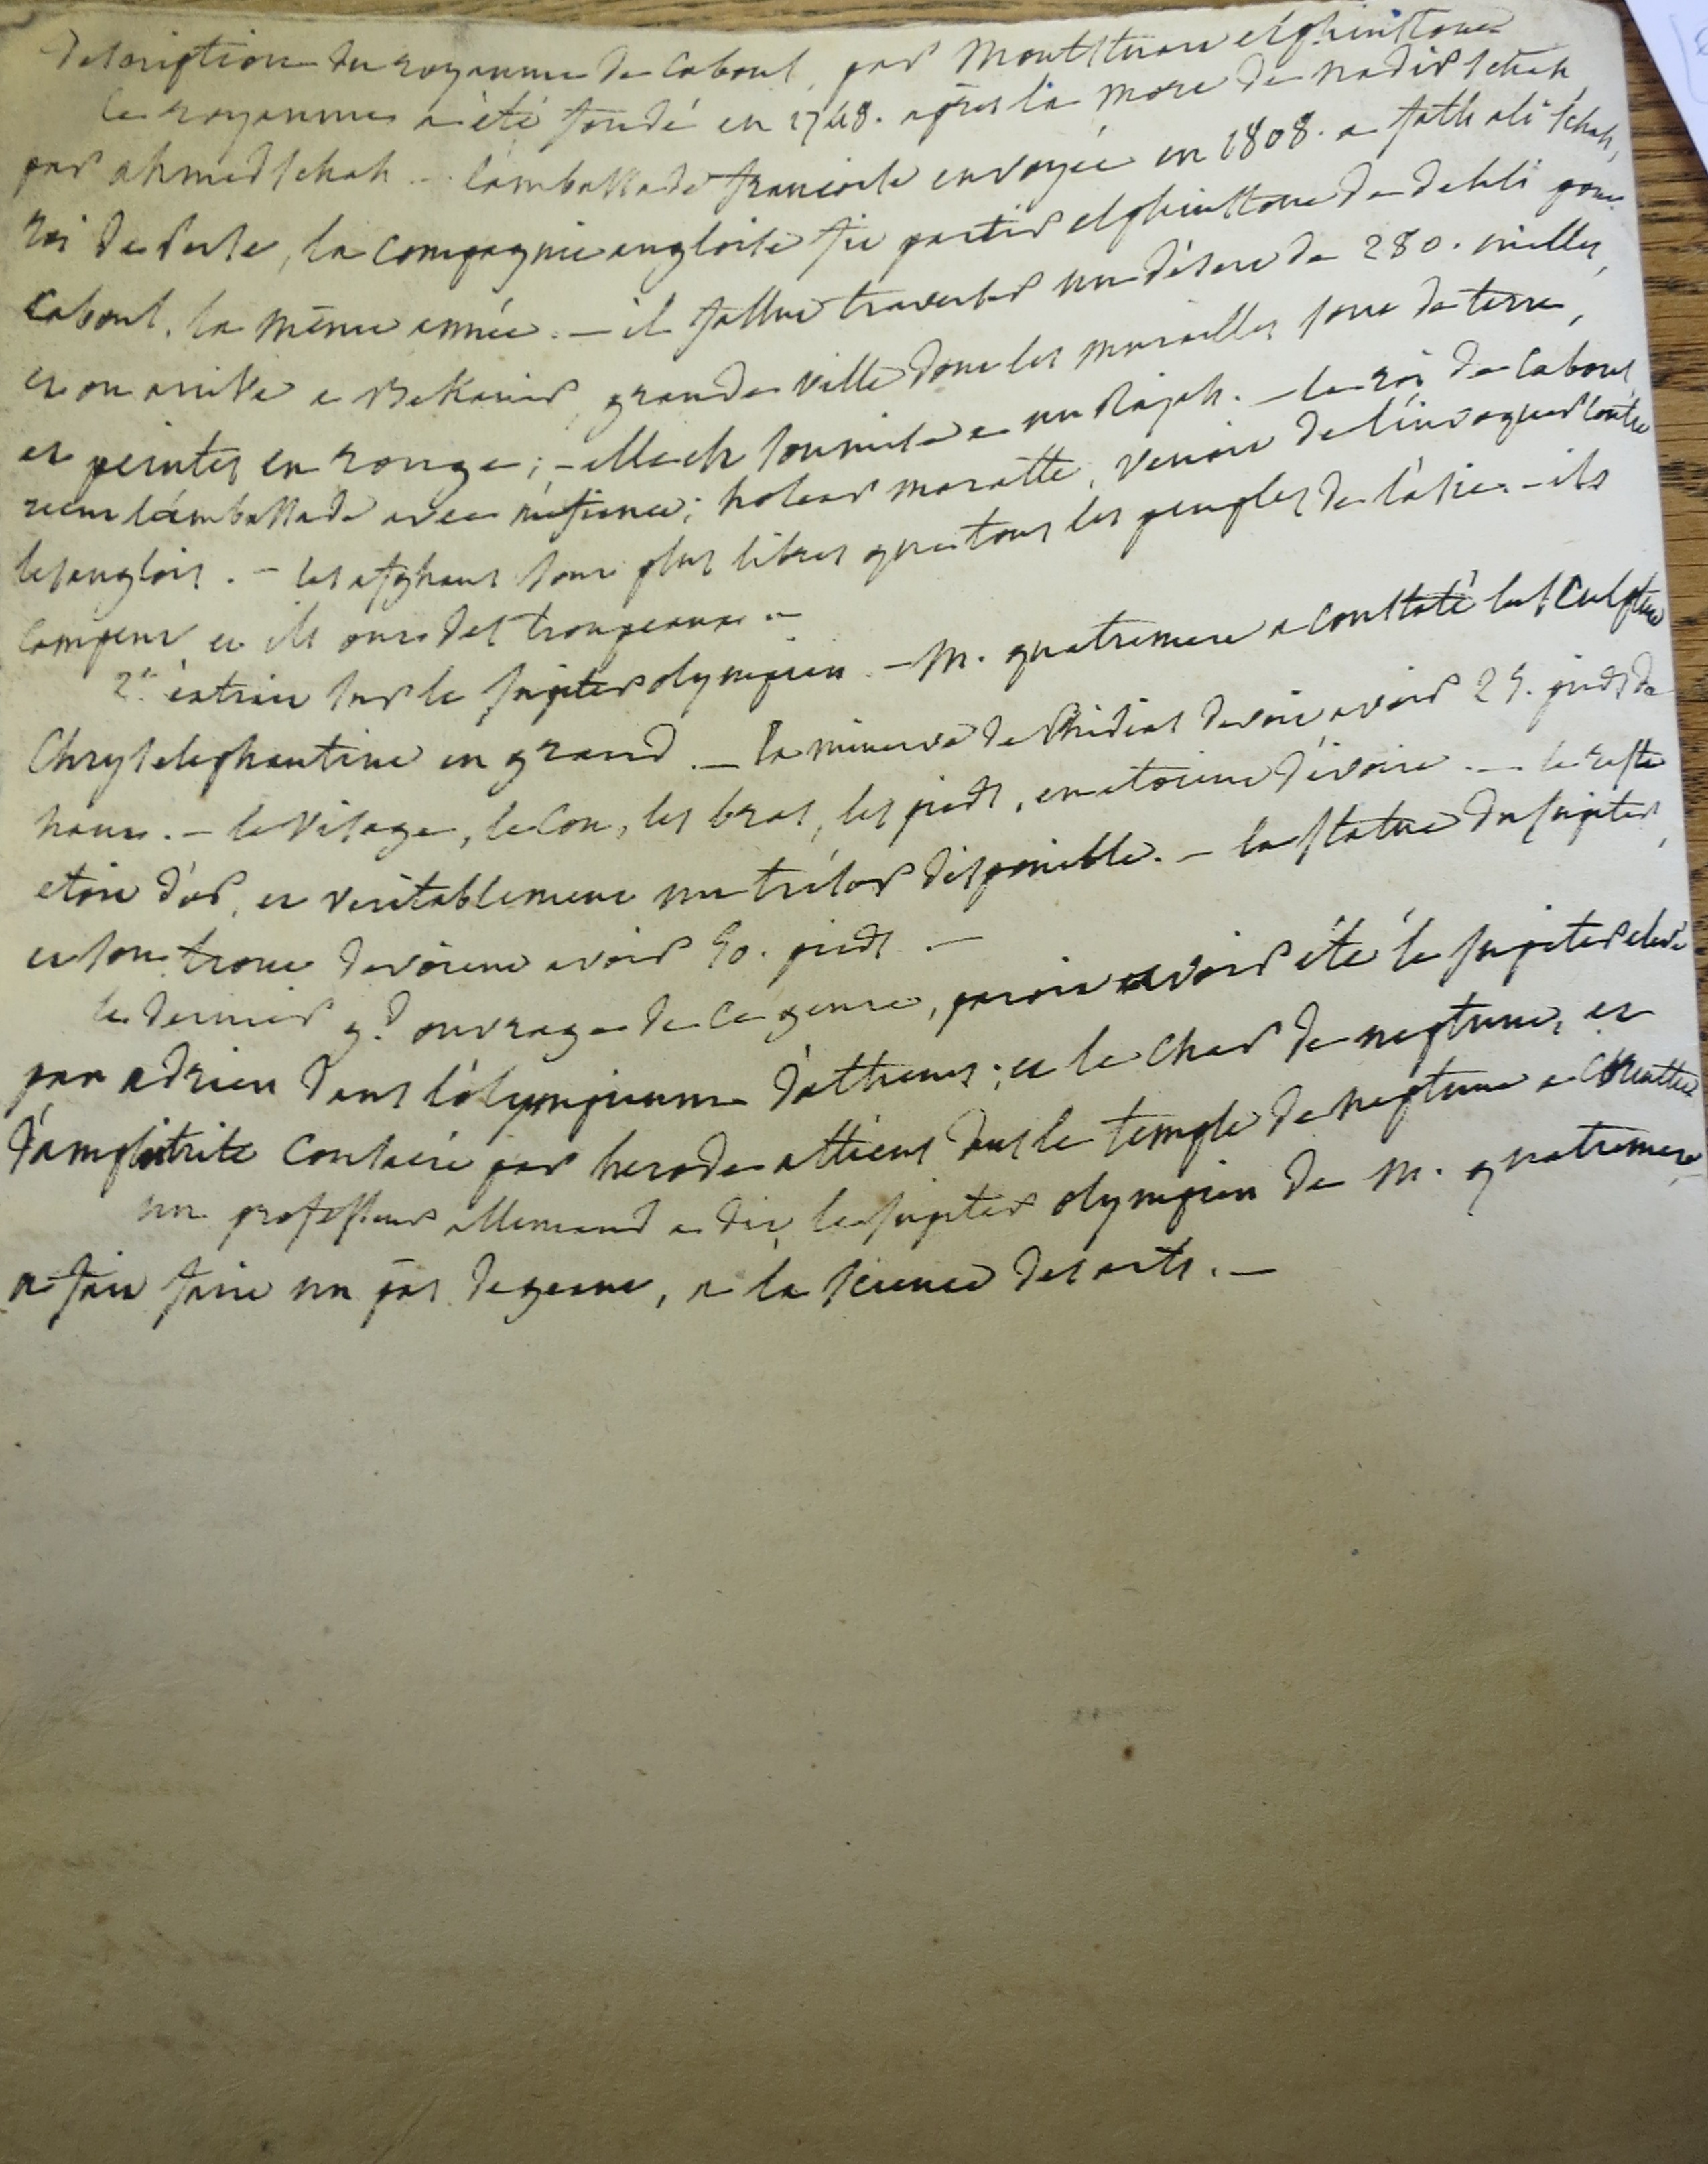 description du royaume de Caboul, par Montstuart elphinstone
le royaume a été fondé en 1748. après la mort de nadir schah,
par ahmed schah. — l'ambassade francoise envoyée en 1808. a fath ali schah,
roi de Perse, la compagnie angloise fit partir elphinstone de dehli pour
Caboul. la même année. — il fallut traverser un désert de 280. milles,
et on arrive a Bekanir, grande ville dont les murailles sont de terre,
et peintes en rouge; — elle est soumise a un Rajah. — le roi de Caboul
recut l'ambassade avec méfiance; holcar maratte, venoit de l'invoquer contre
les anglois. — les afghans sont plus libres que tous les peuples de l'asie. — ils
campent et ils ont des troupeaux. —
2e. extrait sur le jupiter olympien. — M. quatremere a constaté la sculpture
Chryselephantine en grand. — la minerve de Phidias devoit avoir 25. pieds de
haut. — le visage, le cou, les bras, les pieds, en etoient d'ivoire. — le reste
etoit d'or, et veritablement un trésor disponible. — la statue du jupiter,
et son trone devoient avoir 50. pieds. —
le dernier gd. ouvrage de ce genre, paroit avoir été le jupiter elevé
par adrien dans l'olympieum d'athenes; et le char de neptune, et
d'amphitrite consacré par herode atticus dans le temple de neptune a Corinthe
un professeur allemand a dit, le jupiter olympien de M. quatremere
a fait faire un pas de geant, a la science des arts. —